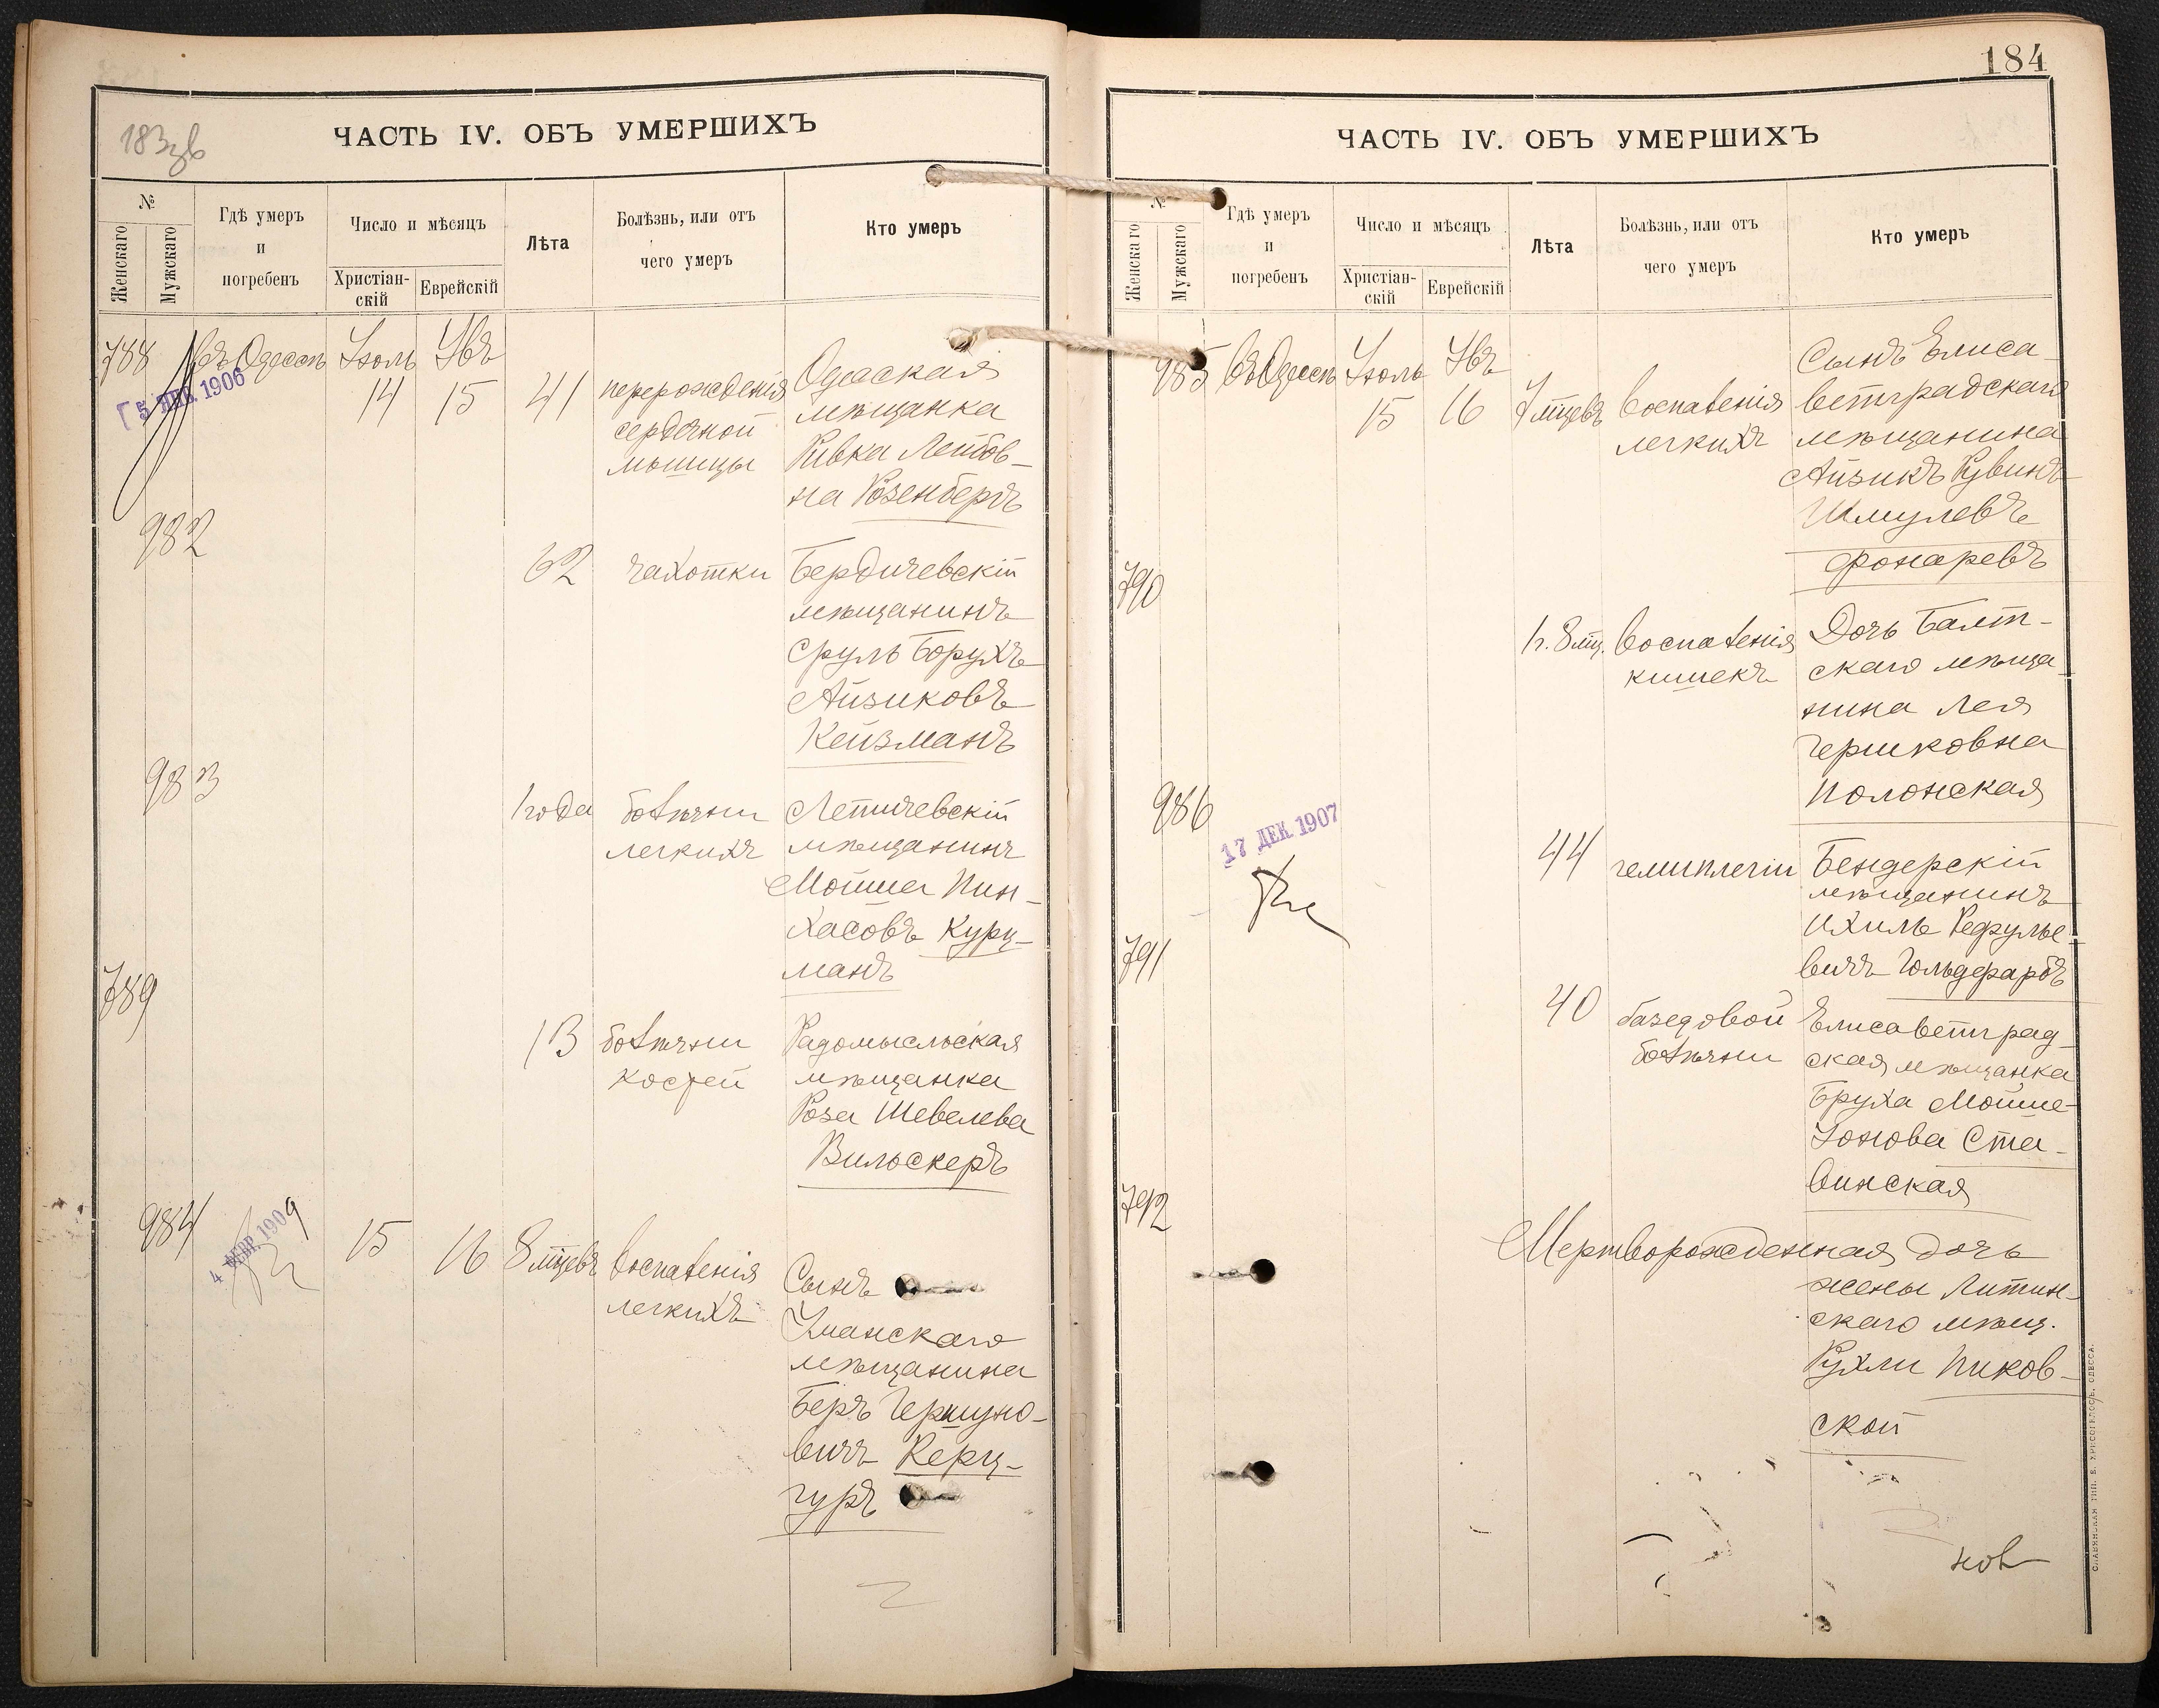 183зв
ЧАСТЬ IV. ОБЪ УМЕРШИХЪ
№
Женскаго
Мужскаго
Гдѣ умеръ
и
погребенъ
Число и мѣсяцъ
Христіан-
скій
Еврейскій
Лѣта
Болѣзнь, или отъ
чего умеръ
Кто умеръ
788
въ Одессѣ
Іюль
14
Увъ
15
41
перерожденія
сердечной
мышцы
Одесская
мѣщанка
Ривка Лейбов-
на Розенбергъ
5 1906
982
62
чахотки
Бердичевскій
мѣщанинъ
Сруль Борухъ
Айзиковъ
Кейзманъ
983
1 года
болѣзни
легкихъ
Летичевскій
мѣщанинъ
Мойше Пин-
хасовъ Курц-
манъ
789
13
болѣзни
костей
Радомысльская
мѣщанка
Роза Шевелева
Вильскеръ
984
4 ФЕВР. 1909
15
16
8 мцевъ
воспаленія
легкихъ
Сынъ
Уманскаго
мѣщанина
Беръ Гершуно-
вичъ Керц-
гуръ
184
ЧАСТЬ IV. ОБЪ УМЕРШИХЪ
№
Женскаго
Мужскаго
Гдѣ умеръ
и
погребенъ
Число и мѣсяцъ
Христіан-
скій
Еврейскій
Лѣта
Болѣзнь, или отъ
чего умеръ
Кто умеръ
985
въ Одессѣ
Іюль
15
Увъ
16
7 мцевъ
воспаленія
легкихъ
Сынъ Елиса-
ветградскаго
мѣщанина
Айзикъ Рувинъ
Шмулевъ
Фонаревъ
790
1 г. 8 мц.
воспаленія
кишекъ
Дочь Балт-
скаго мѣща-
нина Лея
Гершковна
Полонская
986
17 ДЕК 1907
44
гемиплегіи
Бендерскій
мѣщанинъ
Ихиль Рефулье-
вичъ Гольдфарбъ
791
40
базедовой
болѣзни
Елисаветград-
ская мѣщанка
Бруха Мойше-
Іонова Ста-
винская
792
Мертворожденная дочь
жены Литин-
скаго мѣщ.
Рухли Пиков-
ской
нов
СЛАВЯНСКАЯ ТИП. Е. ХРИСОГЕЛОСЪ, ОДЕССА.